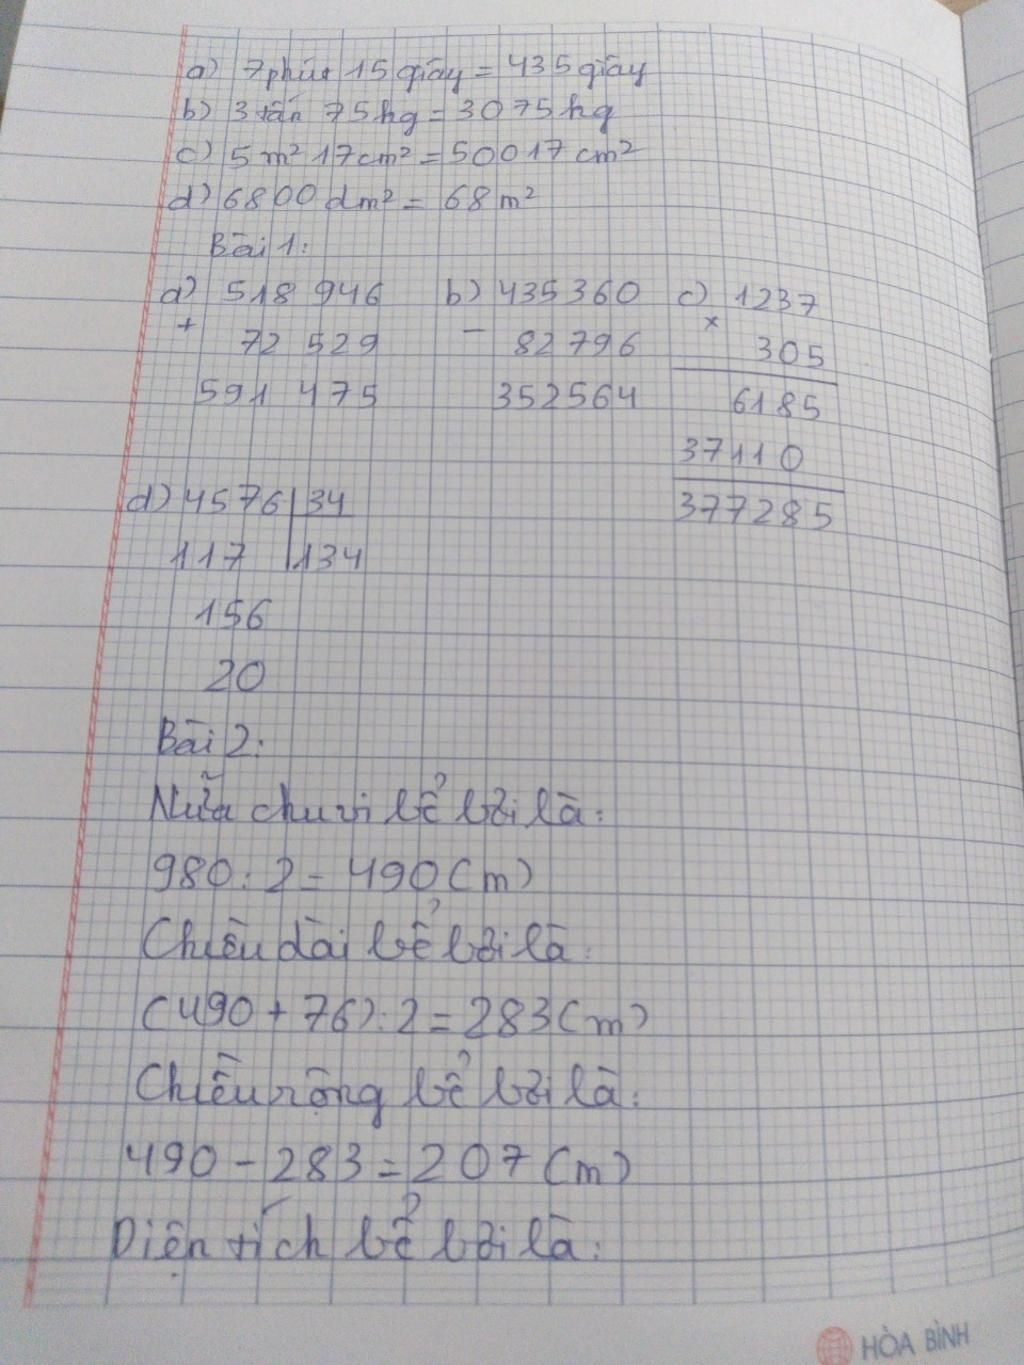 a) 7 phút 15 giây = 435 giây
b) 3 tấn 75 kg = 3075 kg
c) 5 m² 17 cm² = 50017 cm²
d) 6800 dm² = 68 m²
Bài 1:
a) 518 946 b) 435360 c) 1237
+ 72 529 - 82796 x 305
591 475 352564 6185
37110
377285
d) 4576 34
117 134
156
20
Bài 2:
Nửa chu vi bể bơi là:
980 : 2 = 490 (m)
Chiều dài bể bơi là:
(490 + 76) : 2 = 283 (m)
Chiều rộng bể bơi là:
490 - 283 = 207 (m)
Diện tích bể bơi là:
HÒA BÌNH